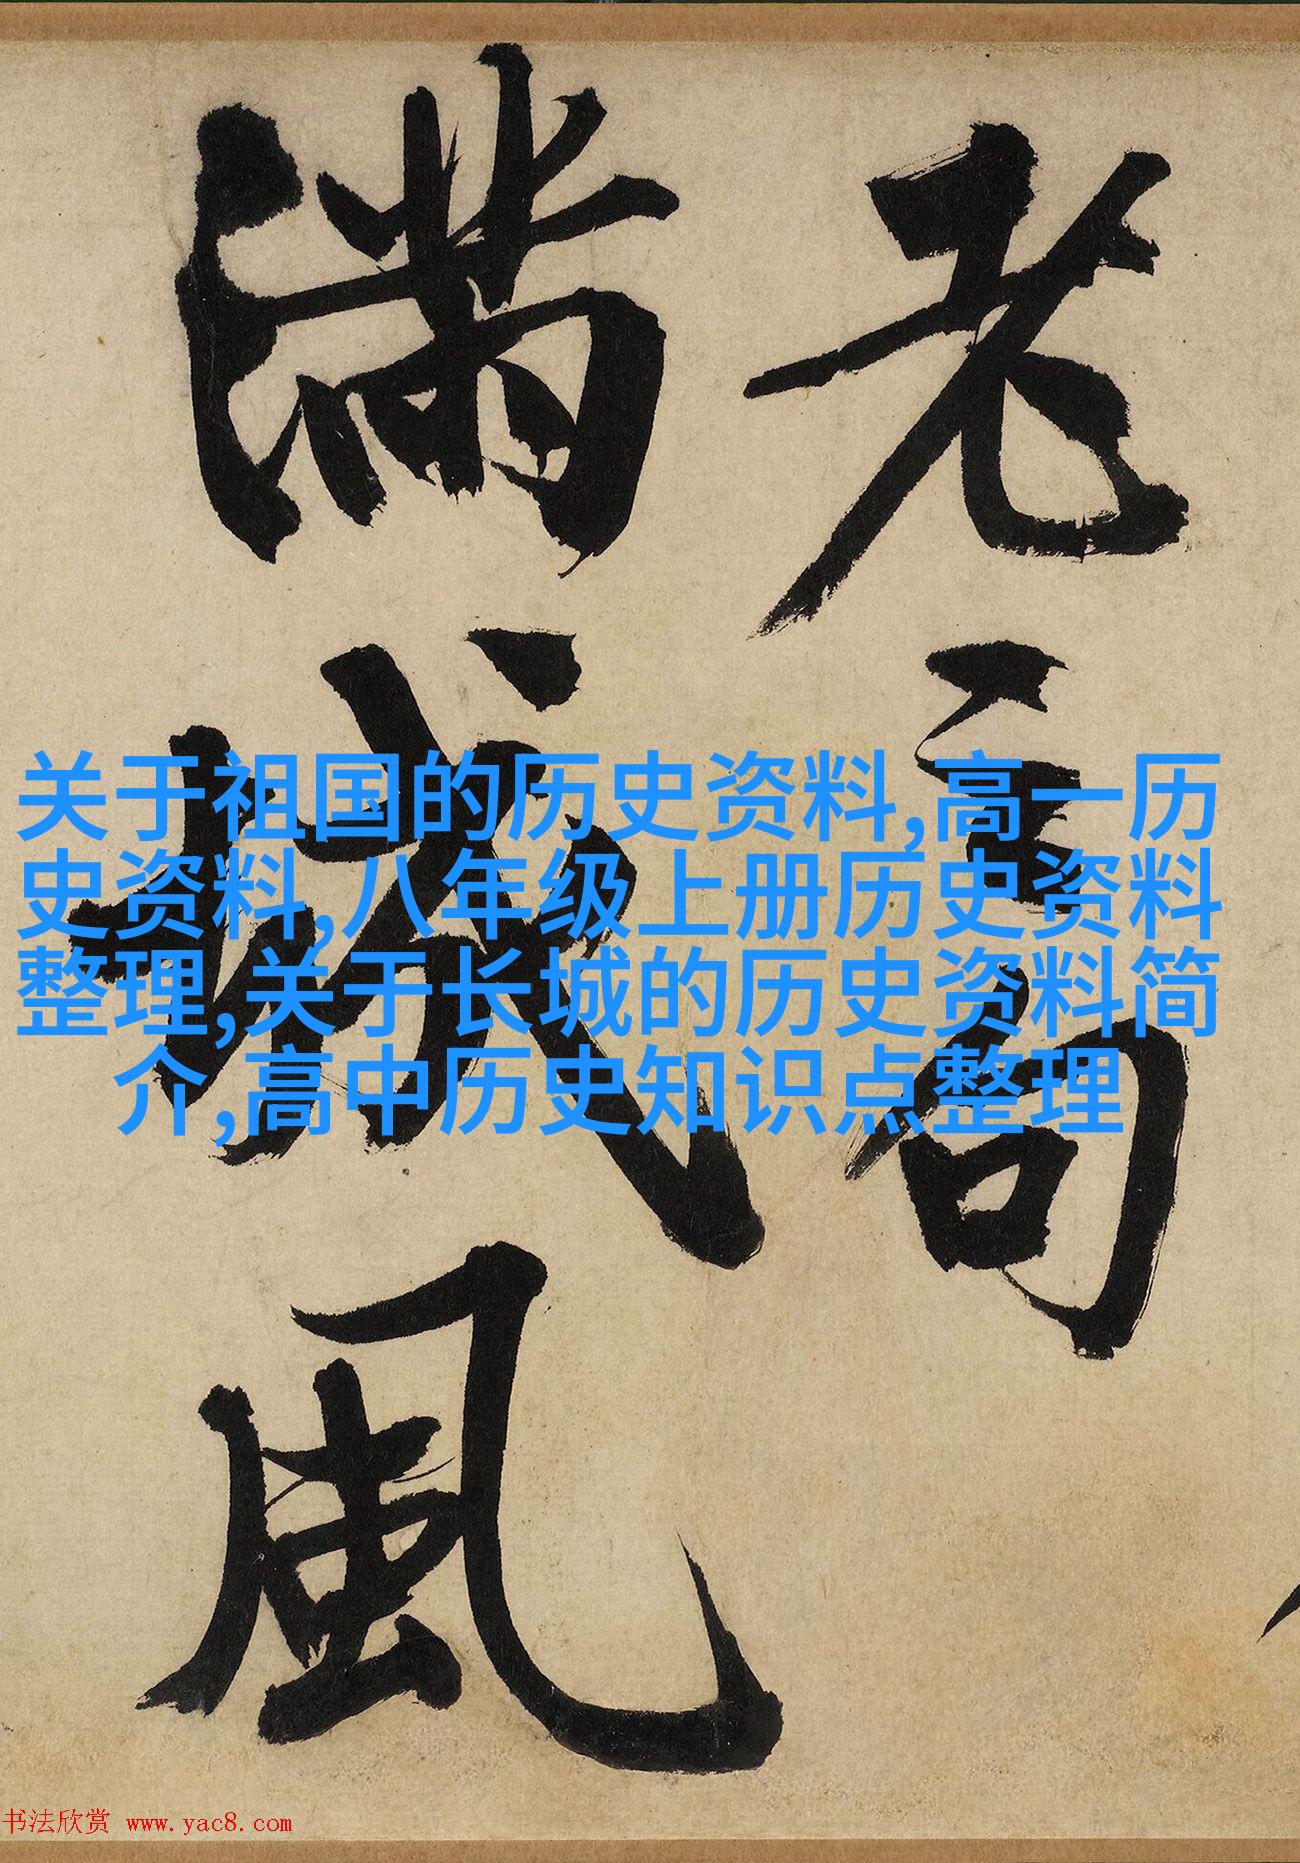 老
滿城風
关于祖国的历史资料,高一历
史资料,八年级上册历史资料
整理,关于长城的历史资料简
介,高中历史知识点整理
书法欣赏 www.yac8.com